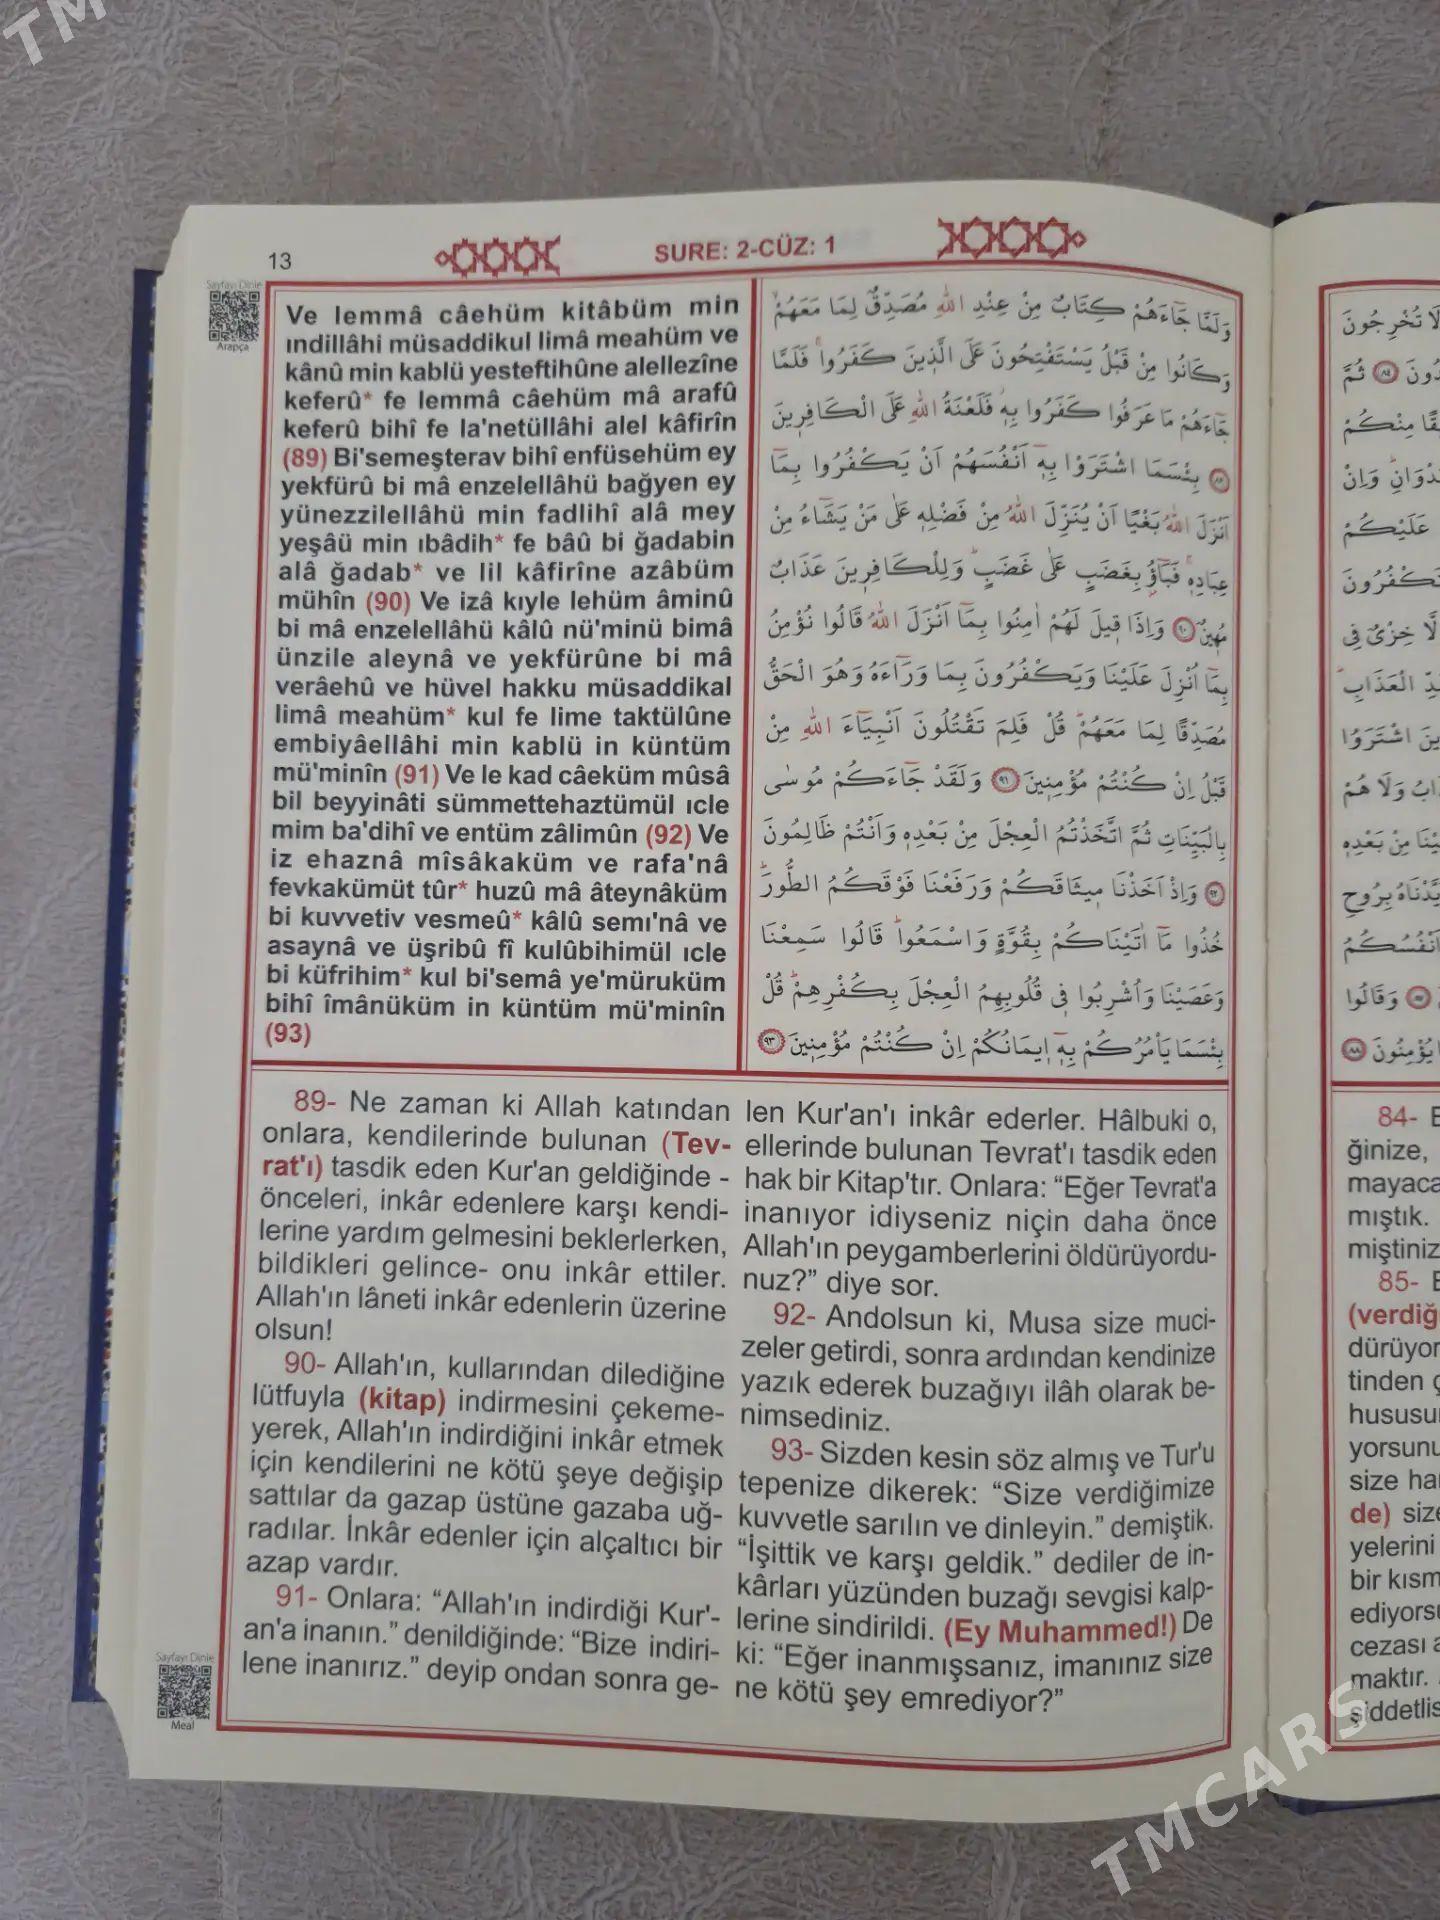 TM
13
SURE: 2-CÜZ: 1
Sayfayı Dinle
Arapça
Ve lemmâ câehüm kitâbüm min
ındillâhi müsaddikul limâ meahüm ve
kânû min kablü yesteftihûne alellezîne
keferû* fe lemmâ câehüm mâ arafû
keferû bihî fe la'netüllâhi alel kâfirîn
(89) Bi'semeşterav bihî enfüsehüm ey
yekfürû bi mâ enzelellâhü bağyen ey
yünezzilellâhü min fadlihî alâ mey
yeşâü min ıbâdih* fe bâû bi ğadabin
alâ ğadab* ve lil kâfirîne azâbüm
mühîn (90) Ve izâ kıyle lehüm âminû
bi mâ enzelellâhü kâlû nü'minü bimâ
ünzile aleynâ ve yekfürûne bi mâ
verâehû ve hüvel hakku müsaddikal
limâ meahüm* kul fe lime taktülûne
embiyâellâhi min kablü in küntüm
mü'minîn (91) Ve le kad câeküm mûsâ
bil beyyinâti sümmettehaztümül ıcle
mim ba'dihî ve entüm zâlimûn (92) Ve
iz ehaznâ mîsâkaküm ve rafa'nâ
fevkakümüt tûr* huzû mâ âteynâküm
bi kuvvetiv vesmeû* kâlû semı'nâ ve
asaynâ ve üşribû fî kulûbihimül ıcle
bi küfrihim* kul bi'semâ ye'mürukүm
bihî îmânüküm in küntüm mü'minîn
(93)
وَلَمَّا جَٓاءَهُمْ كِتَابٌ مِنْ عِنْدِ اللّٰهِ مُصَدِّقٌ لِمَا مَعَهُمْۙ
وَكَانُوا مِنْ قَبْلُ يَسْتَفْتِحُونَ عَلَى الَّذ۪ينَ كَفَرُواۚ فَلَمَّا
جَٓاءَهُمْ مَا عَرَفُوا كَفَرُوا بِه۪ۘ فَلَعْنَةُ اللّٰهِ عَلَى الْكَافِر۪ينَ
﴿٨٩﴾ بِئْسَمَا اشْتَرَوْا بِه۪ٓ اَنْفُسَهُمْ اَنْ يَكْفُرُوا بِمَٓا
اَنْزَلَ اللّٰهُ بَغْيًا اَنْ يُنَزِّلَ اللّٰهُ مِنْ فَضْلِه۪ عَلٰى مَنْ يَشَٓاءُ مِنْ
عِبَادِه۪ۚ فَبَٓاؤُ۫ بِغَضَبٍ عَلٰى غَضَبٍۜ وَلِلْكَافِر۪ينَ عَذَابٌ
مُه۪ينٌ ﴿٩٠﴾ وَاِذَا ق۪يلَ لَهُمْ اٰمِنُوا بِمَٓا اَنْزَلَ اللّٰهُ قَالُوا نُؤْمِنُ
بِمَٓا اُنْزِلَ عَلَيْنَا وَيَكْفُرُونَ بِمَا وَرَٓاءَهُ وَهُوَ الْحَقُّ
مُصَدِّقًا لِمَا مَعَهُمْۜ قُلْ فَلِمَ تَقْتُلُونَ اَنْبِيَٓاءَ اللّٰهِ مِنْ
قَبْلُ اِنْ كُنْتُمْ مُؤْمِن۪ينَ ﴿٩١﴾ وَلَقَدْ جَٓاءَكُمْ مُوسٰى
بِالْبَيِّنَاتِ ثُمَّ اتَّخَذْتُمُ الْعِجْلَ مِنْ بَعْدِه۪ وَاَنْتُمْ ظَالِمُونَ
﴿٩٢﴾ وَاِذْ اَخَذْنَا م۪يثَاقَكُمْ وَرَفَعْنَا فَوْقَكُمُ الطُّورَۜ
خُذُوا مَٓا اٰتَيْنَاكُمْ بِقُوَّةٍ وَاسْمَعُواۜ قَالُوا سَمِعْنَا
وَعَصَيْنَا وَاُشْرِبُوا ف۪ي قُلُوبِهِمُ الْعِجْلَ بِكُفْرِهِمْۜ قُلْ
بِئْسَمَا يَأْمُرُكُمْ بِه۪ٓ ا۪يمَانُكُمْ اِنْ كُنْتُمْ مُؤْمِن۪ينَ ﴿٩٣﴾
89- Ne zaman ki Allah katından
onlara, kendilerinde bulunan (Tev-
rat'ı) tasdik eden Kur'an geldiğinde -
önceleri, inkâr edenlere karşı kendi-
lerine yardım gelmesini beklerlerken,
bildikleri gelince- onu inkâr ettiler.
Allah'ın lâneti inkâr edenlerin üzerine
olsun!
90- Allah'ın, kullarından dilediğine
lütfuyla (kitap) indirmesini çekeme-
yerek, Allah'ın indirdiğini inkâr etmek
için kendilerini ne kötü şeye değişip
sattılar da gazap üstüne gazaba uğ-
radılar. İnkâr edenler için alçaltıcı bir
azap vardır.
91- Onlara: “Allah'ın indirdiği Kur'-
an'a inanın.” denildiğinde: “Bize indiri-
lene inanırız.” deyip ondan sonra ge-
len Kur'an'ı inkâr ederler. Hâlbuki o,
ellerinde bulunan Tevrat'ı tasdik eden
hak bir Kitap'tır. Onlara: “Eğer Tevrat'a
inanıyor idiyseniz niçin daha önce
Allah'ın peygamberlerini öldürüyordu-
nuz?” diye sor.
92- Andolsun ki, Musa size muci-
zeler getirdi, sonra ardından kendinize
yazık ederek buzağıyı ilâh olarak be-
nimsediniz.
93- Sizden kesin söz almış ve Tur'u
tepenize dikerek: “Size verdiğimize
kuvvetle sarılın ve dinleyin.” demiştik.
“İşittik ve karşı geldik.” dediler de in-
kârları yüzünden buzağı sevgisi kalp-
lerine sindirildi. (Ey Muhammed!) De
ki: “Eğer inanmışsanız, imanınız size
ne kötü şey emrediyor?”
Sayfayı Dinle
Meal
لَا تُخْرِجُونَ
ثُمَّ
مِنْكُمْ
وَاِنْ
عَلَيْكُمْ
خِزْيٌ ف۪ي
الْعَذَابِۜ
اشْتَرَوُا
وَلَا هُمْ
مِنْ بَعْدِه۪
بِرُوحِ
اَنْفُسُكُمُ
وَقَالُوا
يُؤْمِنُونَ
84-
ğinize,
mayaca
mıştık.
miştiniz
85-
(verdiğ
dürüyor
tinden
hususu
yorsunu
size ha
de) size
yelerini
bir kısm
ediyorsu
cezası a
maktır.
şiddetlis
TMCARS